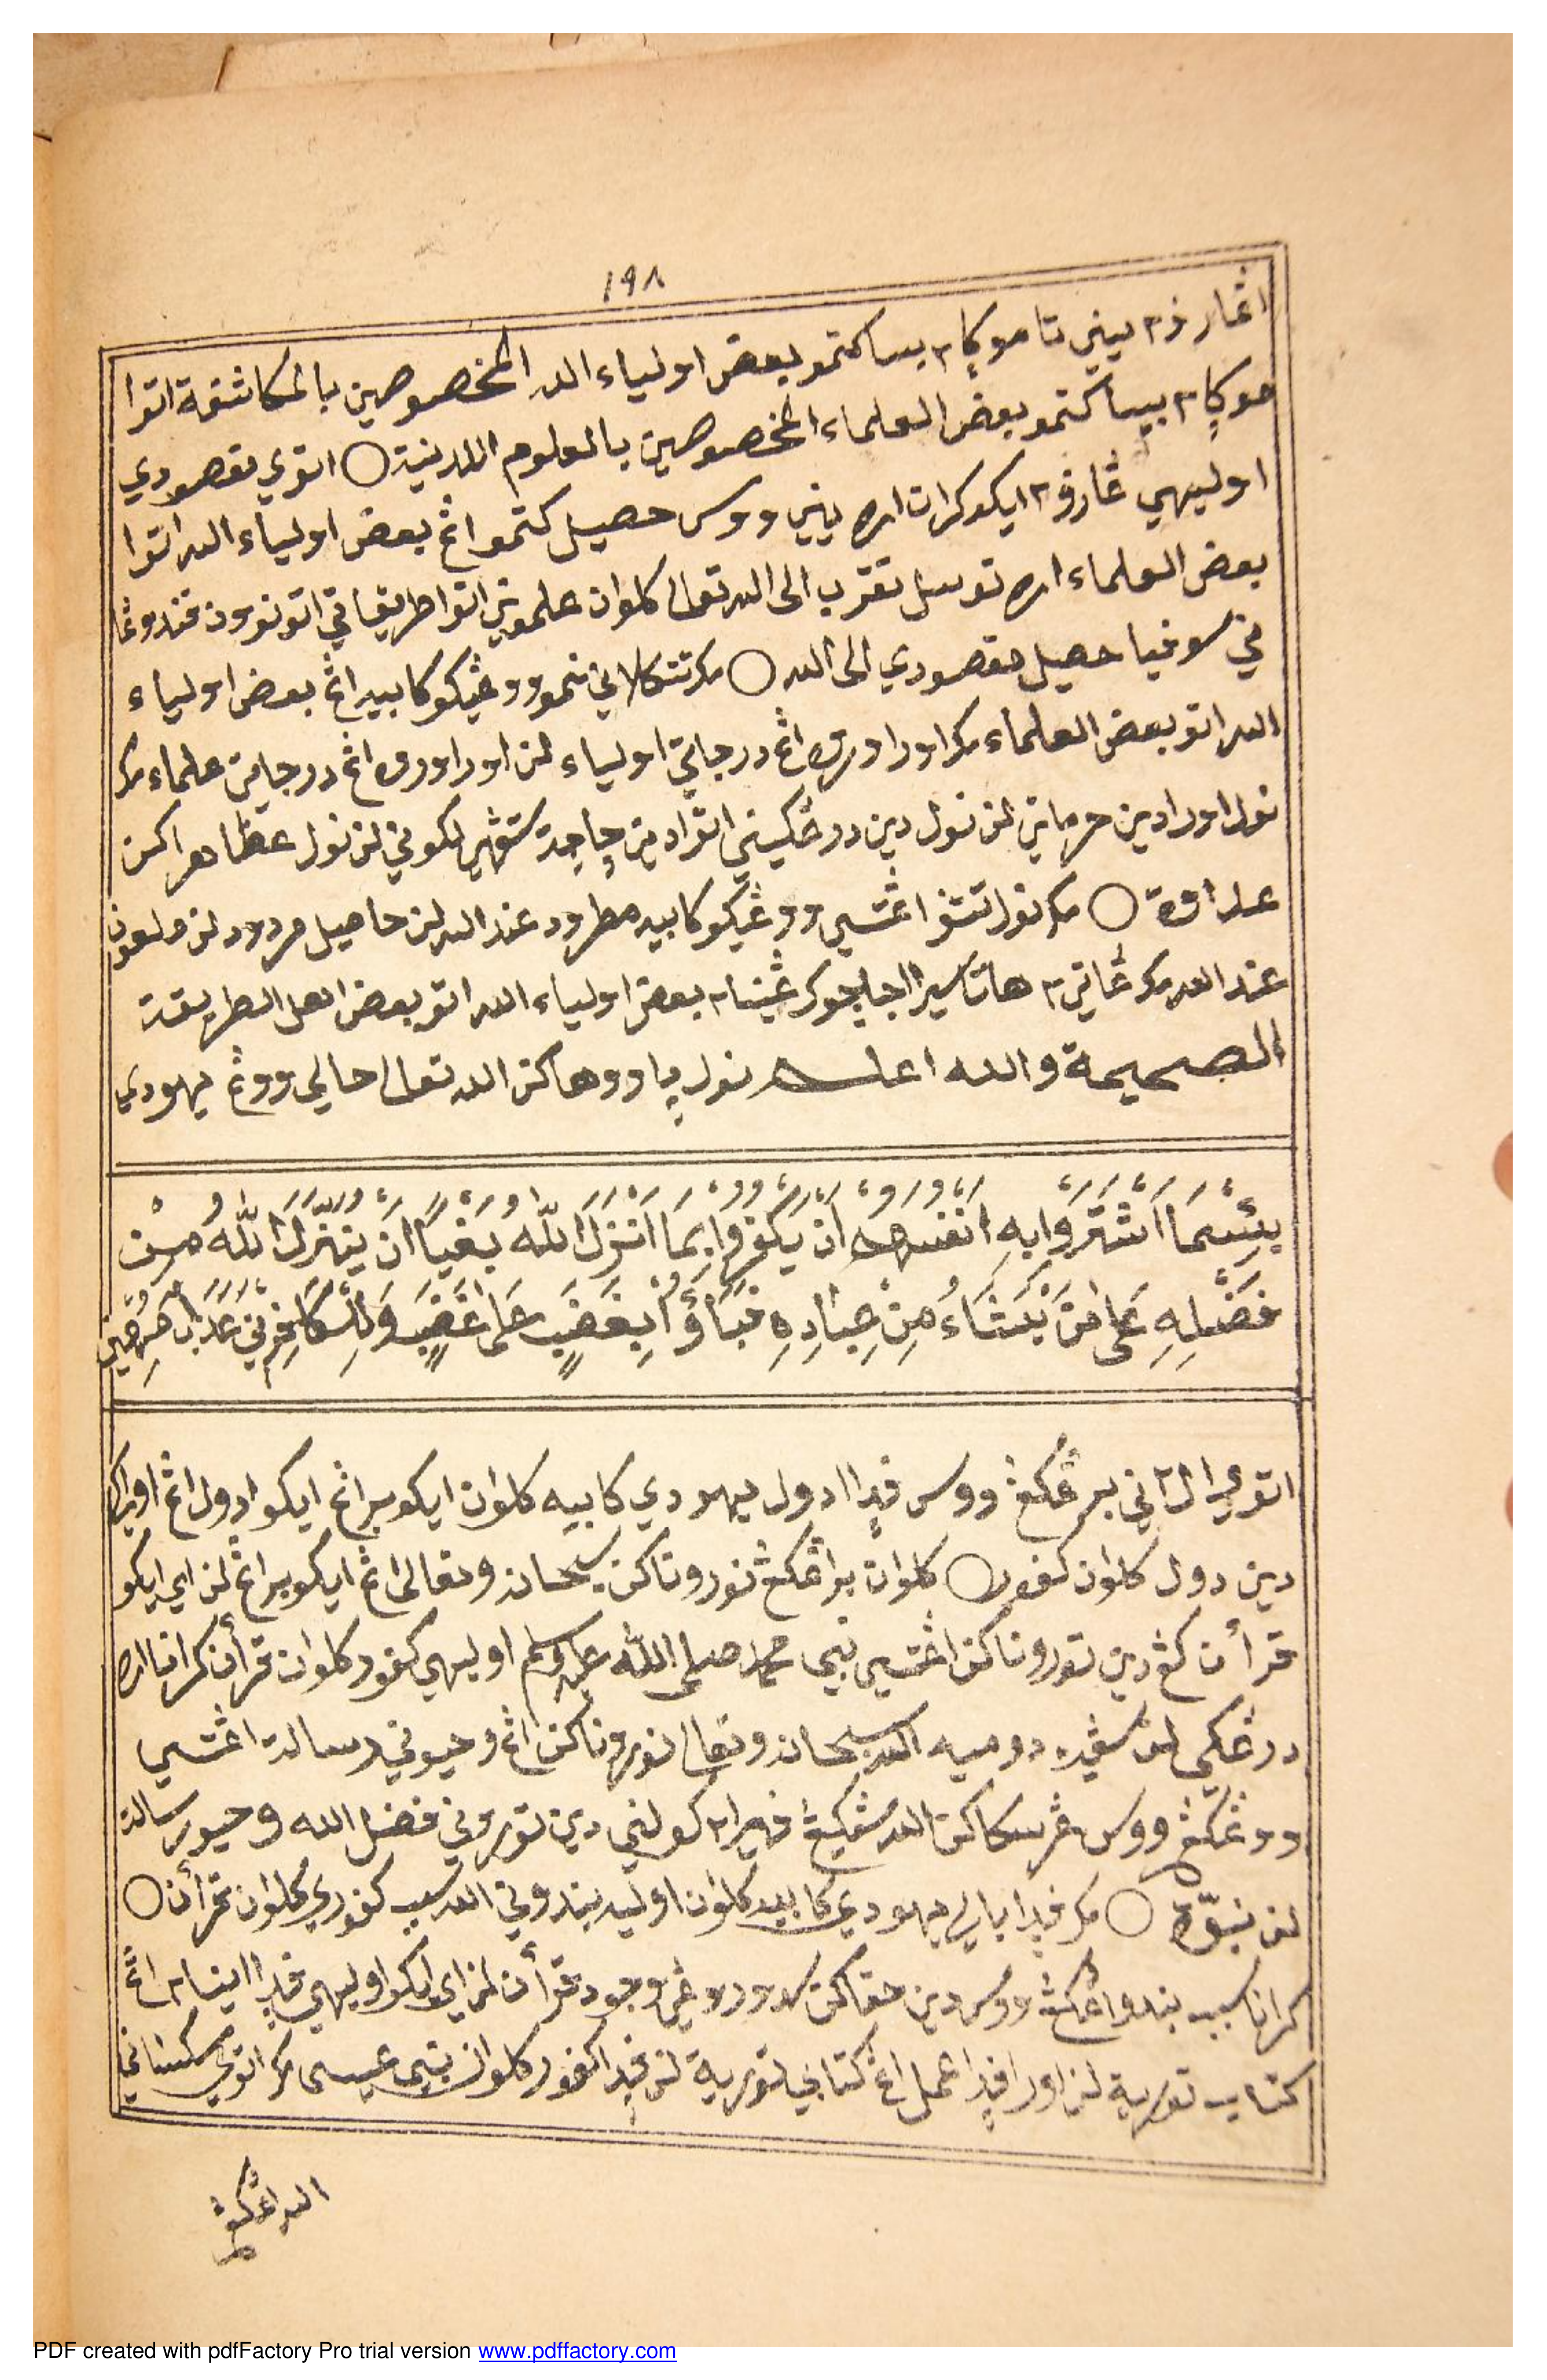 ١٩٨
اڠارڤ٢ يني تا موڮا٢ بيسا كتمو بعض اولياء الله المخصوصين بالمكاشفة اتوا
موڮا٢ بيسا كتمو بعض العلماء المخصوصين بالعلوم اللدنية ○ اتوي مقصودي
اوليهي ڠارڤ٢ ايكو كرانا اره يين ووس حصيل كتمو اڠ بعض اولياء الله اتوا
بعض العلماء اره توسل تقرب الى الله تعالى كلوان علمونى اتوا طريقاتى اتو نورون فندوڠا
نى سوفيا حصيل مقصودي الى الله ○ مكر تتكلانى نمو ووڠيكو كابيه اڠ بعض اولياء
الله اتو بعض العلماء مكر اورا وروه اڠ درجاتى اولياء لن اورا وروه اڠ درجاتى علماء مكر
نولى اورا دين حرماتى لن نولى دين درڠكيني اتوا دين چاچت ستڠهى لكونى لن نولى عظاهراكن
عداوة ○ مكر نولى تتف اڠتسى ووڠيكو كابيه مطرود عند الله لن حاصيل مردود لن ملعون
عند الله مكر ڠاتى٢ هاتا سيرا اجا چوكر ڠينا٢ بعض اولياء الله اتو بعض اهل الطريقة
الصحيحة والله اعلم نولى ڽاووهاكن الله تعالى حالى ووڠ يهودي
بِئْسَمَا اشْتَرَوْا بِهِ أَنْفُسَهُمْ أَنْ يَكْفُرُوا بِمَا أَنْزَلَ اللّٰهُ بَغْيًا أَنْ يُنَزِّلَ اللّٰهُ مِنْ
فَضْلِهِ عَلَى مَنْ يَشَاءُ مِنْ عِبَادِهِ فَبَاؤُا بِغَضَبٍ عَلَى غَضَبٍ وَلِلْكَافِرِيْنَ عَذَابٌ مُهِيْنٌ
اتوي الاني برڠكڠ ووس فدا ادول يهودي كابيه كلوان ايكو براڠ ايكو ادول اڠ اواكى
دين دول كلوان كفور ○ كلوان براڠكڠ نوروناكن سبحانه وتعالى اڠ ايكو براڠ لن اي ايكو
قرأن كڠ دين توروناكن اڠتسى نبي محمد صلى الله عليه وسلم اوليهى كفور كلوان قرأن كرانا اره
درڠكي لن سڤيه دوميه الله سبحانه وتعالى نوروناكن اڠ وحيونى رسالة اڠتسى
ووڠكڠ ووس ڠرساكن الله سڠكيڠ فيرا٢ كولني دين تورونى فضل الله وحيو رسالة
لن نبوّة ○ مكر فدا بالي يهودي كابيه كلوان اوليه بندونى الله سبب كفوري كلوان قرأن ○
كرانا سبب بندواڠكڠ ووس دين حقاكن وجود قرأن لن اي ايكو اوليهى فدا اڽيا٢ اڠ
كتاب تورية لن اورا فدا عمل اڠ كتابى تورية لن فدا كفور كلوان نبي عيسى مكر اتوي سكسانى
الله اڠكڠ
PDF created with pdfFactory Pro trial version www.pdffactory.com